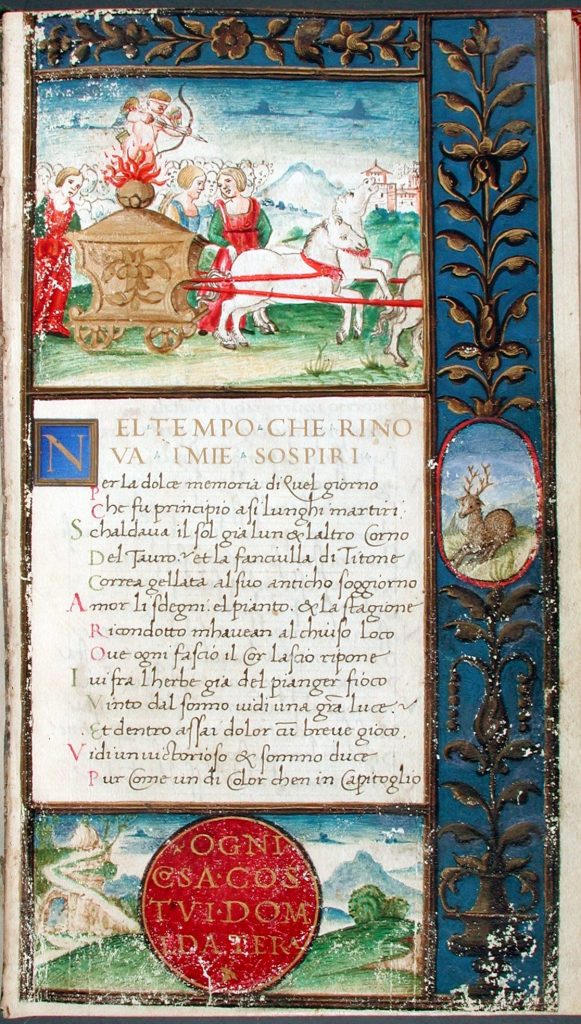 NEL·TEMPO·CHE·RINO
VA · I MIE · SOSPIRI ·
Per la dolce memoria di Quel giorno
Che fu principio a si lunghi martiri.
Schaldaua il sol gia lun & laltro Corno
Del Tauro. et la fanciulla di Titone
Correa gellata al suo anticho soggiorno
Amor li sdegni. el pianto. & la stagione
Ricondotto mhauean al chiuso loco
Oue ogni fascio il Cor lascio ripone
Iui fra lherbe gia del pianger fioco
Vinto dal sonno uidi una grā luce.
Et dentro assai dolor cū breue gioco
Vidi un uictorioso & sommo duce
Pur Come un di Color chen in Capitoglio
OGNI
CSA·COS
TVI·DOM